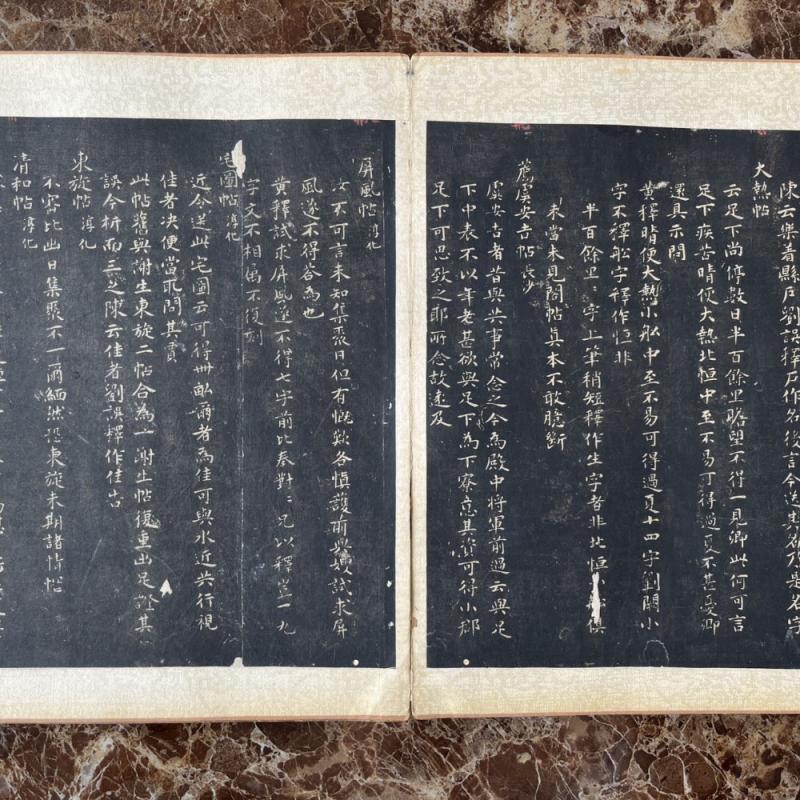 陳云樂着縣戶劉誤釋戶作名後言令送其
大熱帖
云足下尚停數日半百餘里瞻望不得一見卿此何可言
足下疾苦晴便大熱北恒中至不易可得過夏不甚憂卿
還具示問
黃釋晴便大熱小舩中至不易可得過夏十四字劉闕小
字不釋舩字釋作恒非
半百餘里里字上筆稍短釋作生字者非北恒
未當未見閣帖真本不敢臆斷
薦虞安吉帖 長沙
虞安吉者昔與共事常念之今為殿中將軍前過云與足
下中表不以年老甚欲與足下為下寮意其資可得小郡
足下可思致之耶所念故遠及
屏風帖 淳化
汝不可言未知集聚日但有慨歎各慎護前與嫂試求屏
風遂不得答為也
黃釋試求屏風遂不得七字前比奉對對兄以釋豈一九
字文不相屬不復刻
宅圖帖 淳化
近令送此宅圖云可得卌畝爾者為佳可與水近共行視
佳者决便當取問其賈
此帖舊與謝生東旋二帖合為一謝生帖復重出足證其
誤今析而三之陳云佳者劉誤釋作佳古
東旋帖 淳化
不審比出日集聚不一爾緬然恐東旋未期諸情悵
清和帖 淳化